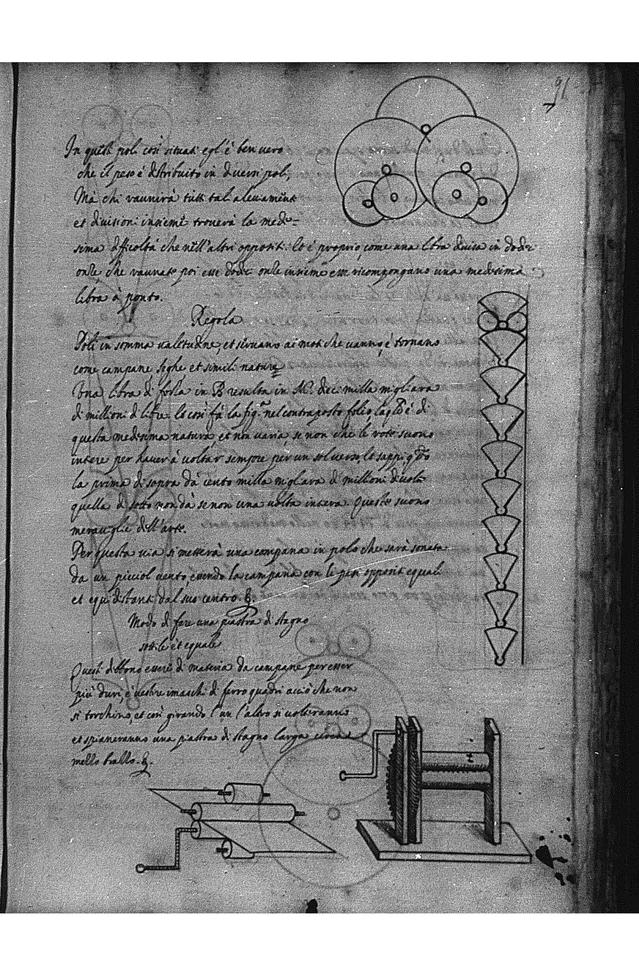 91
In questi poli così situati egl'è ben vero
che il peso è distribuito in diversi poli,
Mà chi raunerà tutti tal alevamenti
et divisioni insieme troverà la mede-
sima difficoltà che nell'altri oppositi. Et è proprio come una libra divisa in dodici
onze che raunate poi esse dodici onze insieme esse ricompongano una medesima
libra à ponto.
Regola
Poli in somma valitudine, et servano ai moti che vanno, è tornano
come campane seghe et simili nature
Una libra di forza in B resulta in M. dieci milla migliara
di millioni di libre. Et così fà la fig.ra nel contraposto foglio la q.le è di
questa medesima natura et non varia se non che le rote suono
intere per haver à voltar sempre per un sol verso, et sappi q.do
la prima di sopra dà cento milla migliara di millioni di volte
quella di sotto non dà se non una volta intera. Queste suono
meraviglie dell'arte.
Per questa via si metterà una campana in polo che sarà sonata
da un picciol vento essendo la campana con li pesi oppositi equali
et equidistanti dal suo centro. &.
Modo di fare una piastra di stagno
sottile et equale
Questi debbono essere di materia da campane per esser
più duri, è vestire i maschi di ferro quadri acciò che non
si torchino, et così girando l'un l'altro si volteranno
et spianeranno una piastra di stagno larga circa
mezzo brazzo. &.